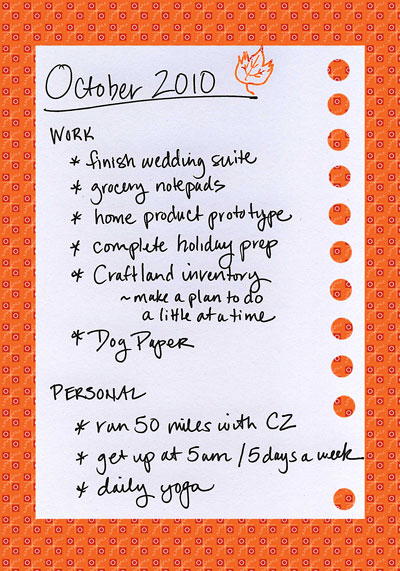 October 2010
WORK
* finish wedding suite
* grocery notepads
* home product prototype
* complete holiday prep
* Craftland inventory
~make a plan to do
a little at a time
* Dog Paper
PERSONAL
* run 50 miles with CZ
* get up at 5am / 5 days a week
* daily yoga